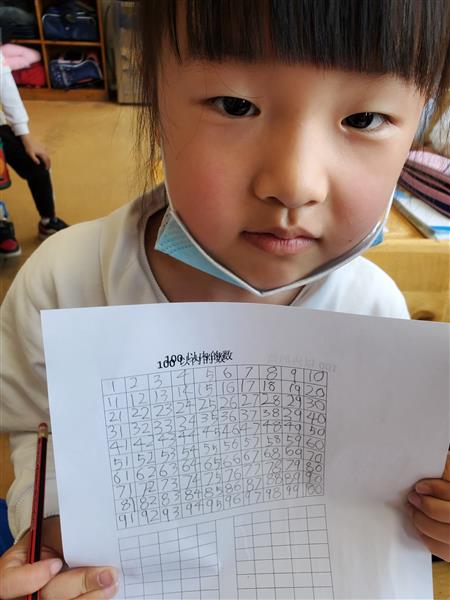 100 以内的数
1 2 3 4 5 6 7 8 9 10
11 12 13 14 15 16 17 18 19 20
21 22 23 24 25 26 27 28 29 30
31 32 33 34 35 36 37 38 39 40
41 42 43 44 45 46 47 48 49 50
51 52 53 54 55 56 57 58 59 60
61 62 63 64 65 66 67 68 69 70
71 72 73 74 75 76 77 78 79 80
81 82 83 84 85 86 87 88 89 90
91 92 93 94 95 96 97 98 99 100